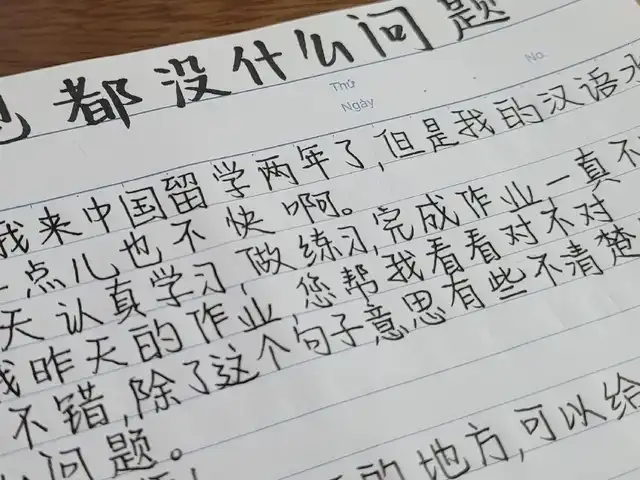 都没什么问题
Thứ
Ngày
No.
我来中国留学两年了,但是我的汉语水
一点儿也不快啊。
天认真学习,做练习,完成作业一真不
我昨天的作业,您帮我看看对不对
不错,除了这个句子意思有些不清楚
么问题。
的地方,可以给